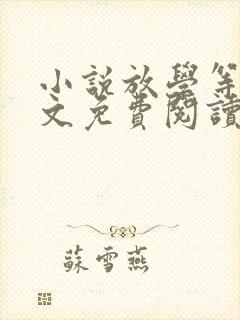 小説放學等
文免費閱讀
蘇雪燕